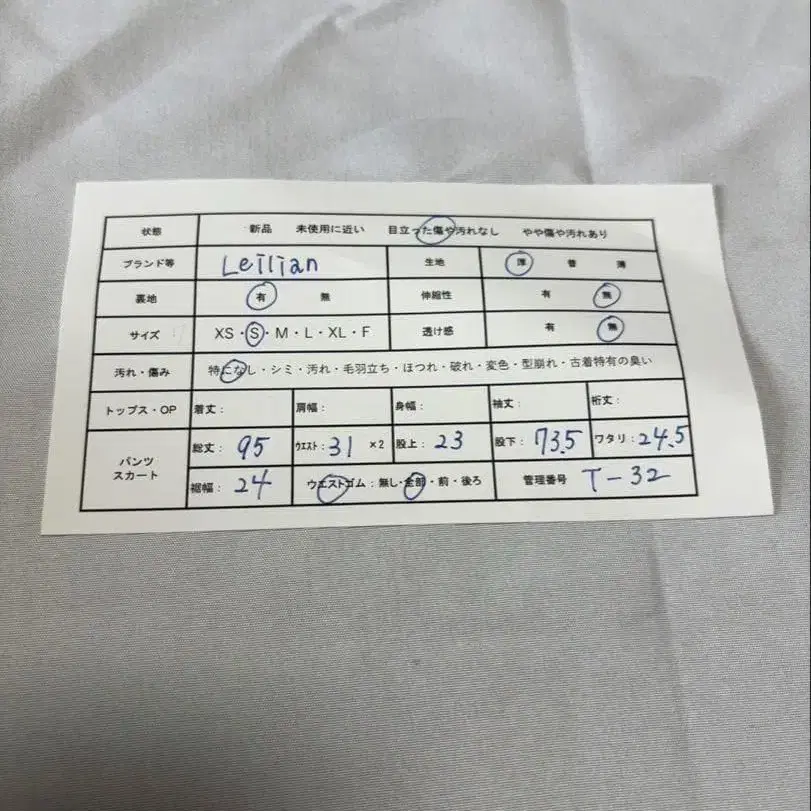 状態 新品 未使用に近い 目立った傷や汚れなし やや傷や汚れあり
ブランド等 Leilian 生地 厚 普 薄
裏地 有 無 伸縮性 有 無
サイズ XS・S・M・L・XL・F 透け感 有 無
汚れ・傷み 特になし・シミ・汚れ・毛羽立ち・ほつれ・破れ・変色・型崩れ・古着特有の臭い
トップス・OP 着丈: 肩幅: 身幅: 袖丈: 裄丈:
パンツ スカート 総丈: 95 ウエスト: 31 ×2 股上: 23 股下: 73.5 ワタリ: 24.5
裾幅: 24 ウエストゴム:無し・全部・前・後ろ 管理番号 T-32